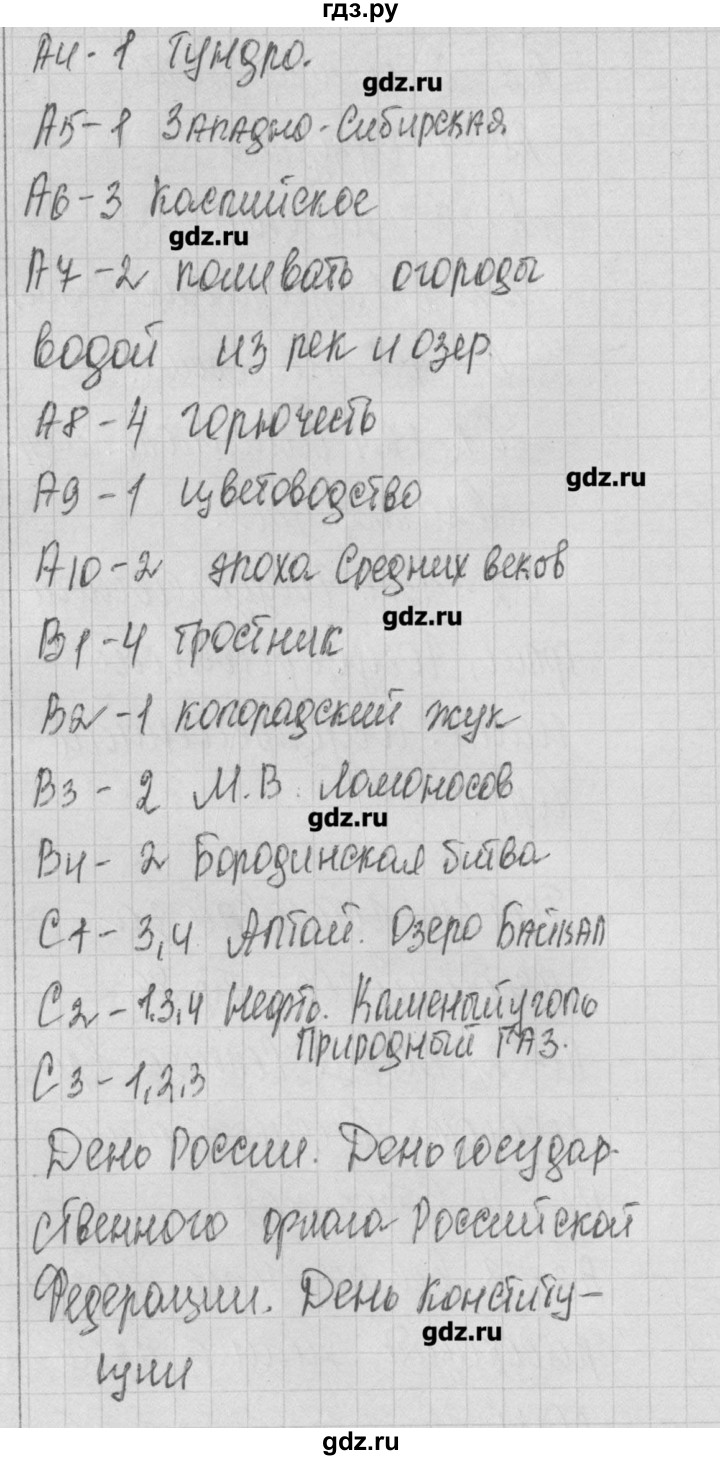 гдз.ру
А4-1 Тундра.
gdz.ru
А5-1 Западно-Сибирская
А6-3 Каспийское
gdz.ru
А7-2 поливать огороды
водой из рек и озер
А8-4 горючесть
gdz.ru
А9-1 цветоводство
А10-2 эпоха Средних веков
gdz.ru
В1-4 тростник
В2-1 колорадский жук
В3-2 М.В. Ломоносов
gdz.ru
В4-2 Бородинская битва
С1-3,4 Алтай. Озеро Байкал
С2-1.3,4 Нефть. Каменый уголь
Природный газ.
С3-1,2,3
День России. День государ-
ственного флага Российской
Федерации. День Конститу-
gdz.ru
ции
gdz.ru